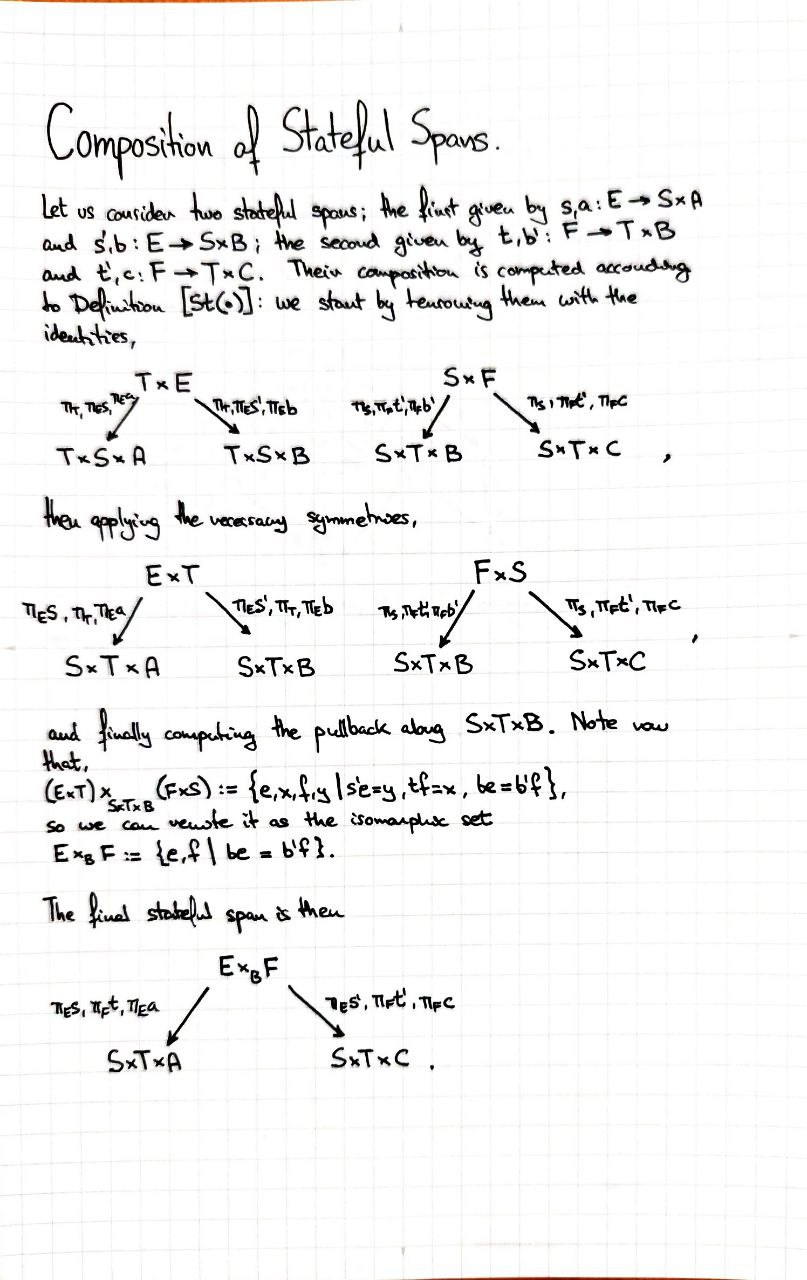 Composition of Stateful Spans.
Let us consider two stateful spans; the first given by s,a : E → S×A
and s',b : E → S×B ; the second given by t,b' : F → T×B
and t',c : F → T×C. Their composition is computed according
to Definition [St(•)]: we start by tensoring them with the
identities,
T×E S×F
π_T, π_E s, π_E a π_T, π_E s', π_E b π_S, π_F t, π_F b' π_S, π_F t', π_F c
T×S×A T×S×B S×T×B S×T×C ,
then applying the necessary symmetries,
E×T F×S
π_E s, π_T, π_E a π_E s', π_T, π_E b π_S, π_F t, π_F b' π_S, π_F t', π_F c
S×T×A S×T×B S×T×B S×T×C ,
and finally computing the pullback along S×T×B. Note now
that,
(E×T) ×_{S×T×B} (F×S) := {e,x,f,y | s'e=y, tf=x, be=b'f},
so we can rewrite it as the isomorphic set
E×_B F := {e,f | be = b'f}.
The final stateful span is then
E×_B F
π_E s, π_F t, π_E a π_E s', π_F t', π_F c
S×T×A S×T×C .